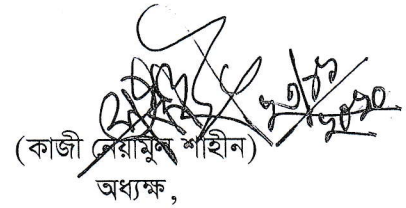 (কাজী নেয়ামুল শাহীন)
অধ্যক্ষ,